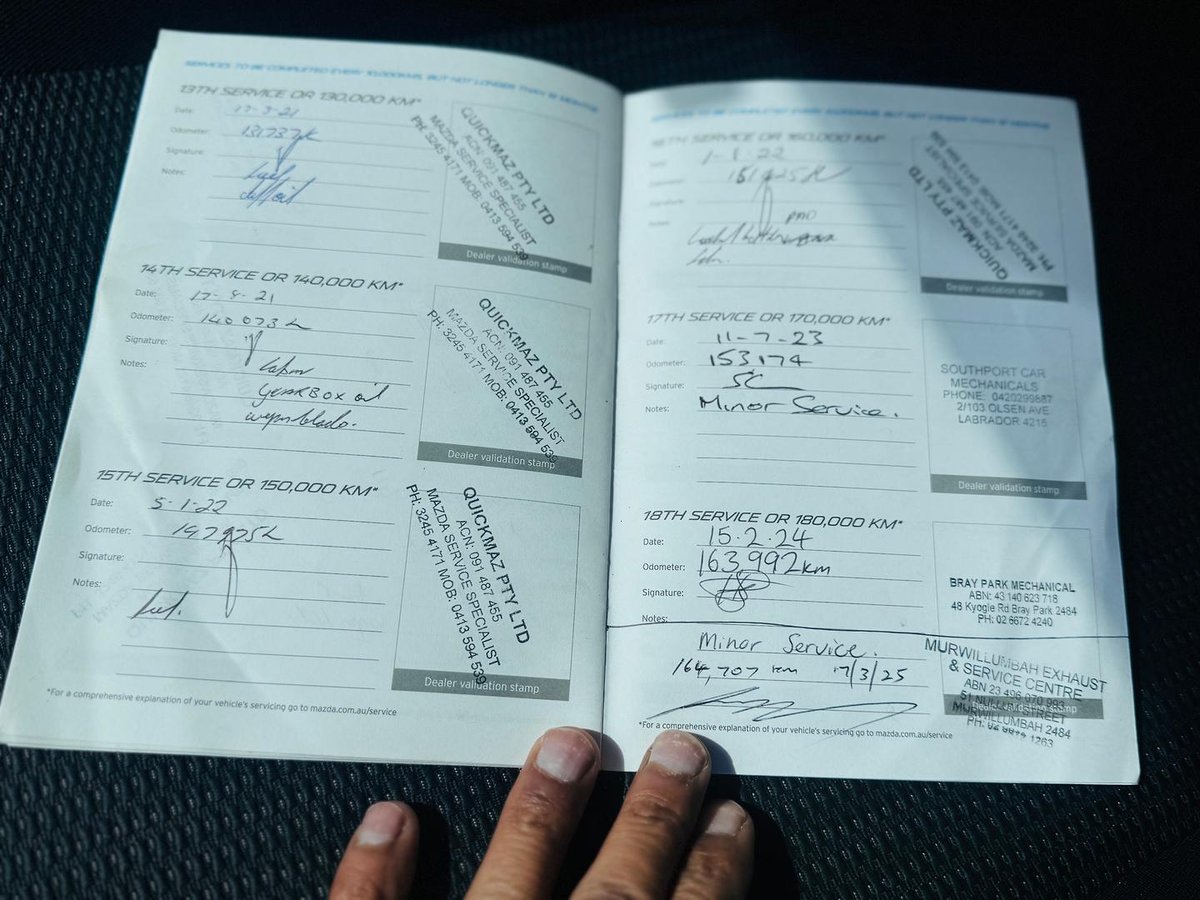 SERVICES TO BE COMPLETED EVERY 10,000KMS, BUT NOT LONGER THAN 12 MONTHS
13TH SERVICE OR 130,000 KM*
Date: 17-3-21
Odometer:
Signature:
Notes:
QUICKMAZ PTY LTD
ACN: 091 487 455
MAZDA SERVICE SPECIALIST
PH: 3245 4171 MOB: 0413 594 539
Dealer validation stamp
14TH SERVICE OR 140,000 KM*
Date: 17-8-21
Odometer: 140 073
Signature:
Notes:
GEARBOX oil
QUICKMAZ PTY LTD
ACN: 091 487 455
MAZDA SERVICE SPECIALIST
PH: 3245 4171 MOB: 0413 594 539
Dealer validation stamp
15TH SERVICE OR 150,000 KM*
Date: 5-1-22
Odometer:
Signature:
Notes:
QUICKMAZ PTY LTD
ACN: 091 487 455
MAZDA SERVICE SPECIALIST
PH: 3245 4171 MOB: 0413 594 539
Dealer validation stamp
*For a comprehensive explanation of your vehicle's servicing go to mazda.com.au/service
SERVICES TO BE COMPLETED EVERY 10,000KMS, BUT NOT LONGER THAN 12 MONTHS
16TH SERVICE OR 160,000 KM*
Date:
Odometer:
Signature:
Notes:
QUICKMAZ PTY LTD
ACN: 091 487 455
MAZDA SERVICE SPECIALIST
PH: 3245 4171 MOB: 0413 594 539
Dealer validation stamp
17TH SERVICE OR 170,000 KM*
Date: 11-7-23
Odometer: 153174
Signature: SC
Notes: Minor Service.
SOUTHPORT CAR
MECHANICALS
PHONE: 0420299887
2/103 OLSEN AVE
LABRADOR 4215
Dealer validation stamp
18TH SERVICE OR 180,000 KM*
Date: 15.2.24
Odometer: 163,992 km
Signature:
Notes:
BRAY PARK MECHANICAL
ABN: 43 140 623 718
48 Kyogle Rd Bray Park 2484
PH: 02 6672 4240
Minor Service.
164,707 km 17/3/25
MURWILLUMBAH EXHAUST
& SERVICE CENTRE
ABN 23 496 070
STREET
MURWILLUMBAH 2484
PH: 02 1263
Dealer validation stamp
*For a comprehensive explanation of your vehicle's servicing go to mazda.com.au/service